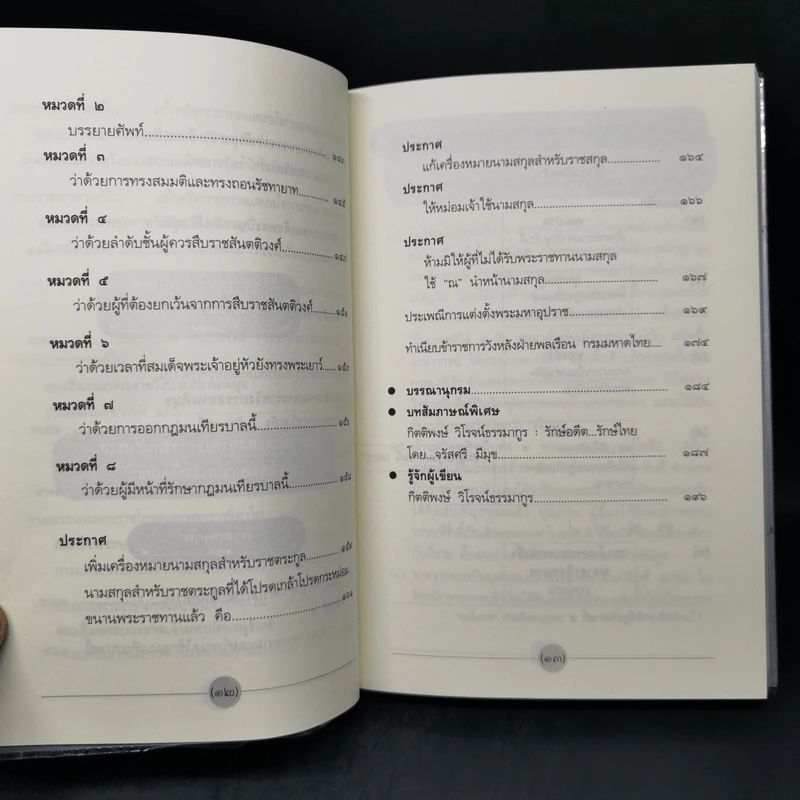 หมวดที่ ๒
บรรยายศัพท์ ๑๔๓
หมวดที่ ๓
ว่าด้วยการทรงสมมติและทรงถอนรัชทายาท ๑๔๕
หมวดที่ ๔
ว่าด้วยลำดับชั้นผู้ควรสืบราชสันตติวงศ์ ๑๔๗
หมวดที่ ๕
ว่าด้วยผู้ที่ต้องยกเว้นจากการสืบราชสันตติวงศ์ ๑๕๑
หมวดที่ ๖
ว่าด้วยเวลาที่สมเด็จพระเจ้าอยู่หัวยังทรงพระเยาว์ ๑๕๓
หมวดที่ ๗
ว่าด้วยการออกกฎมนเทียรบาลนี้ ๑๕๖
หมวดที่ ๘
ว่าด้วยผู้มีหน้าที่รักษากฎมนเทียรบาลนี้ ๑๕๘
ประกาศ
เพิ่มเครื่องหมายนามสกุลสำหรับราชตระกูล ๑๕๙
นามสกุลสำหรับราชตระกูลที่ได้โปรดเกล้าโปรดกระหม่อม
ขนานพระราชทานแล้ว คือ ๑๖๑
(๑๒)
ประกาศ
แก้เครื่องหมายนามสกุลสำหรับราชสกุล ๑๖๔
ประกาศ
ให้หม่อมเจ้าใช้นามสกุล ๑๖๖
ประกาศ
ห้ามมิให้ผู้ที่ไม่ได้รับพระราชทานนามสกุล
ใช้ "ณ" นำหน้านามสกุล ๑๖๗
ประเพณีการแต่งตั้งพระมหาอุปราช ๑๖๙
ทำเนียบข้าราชการวังหลังฝ่ายพลเรือน กรมมหาดไทย ๑๗๔
● บรรณานุกรม ๑๘๔
● บทสัมภาษณ์พิเศษ
กิตติพงษ์ วิโรจน์ธรรมากูร : รักษ์อดีต...รักษ์ไทย
โดย...จรัสศรี มีมุข ๑๘๗
● รู้จักผู้เขียน
กิตติพงษ์ วิโรจน์ธรรมากูร ๑๙๖
(๑๓)